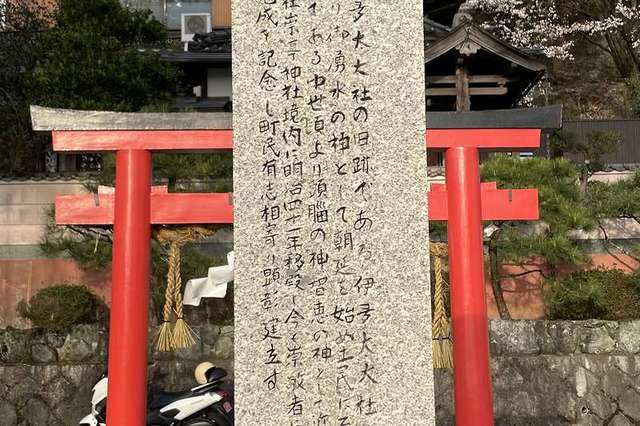 多大大社の旧跡である伊多大大社
り御湧水の神として朝廷を始め土民に
である中世頃より頭脳の神智恵の神として
社京三神社境内に明治四十一年移設し今も崇敬者
完成を記念し町民有志相寄り顕彰建立する